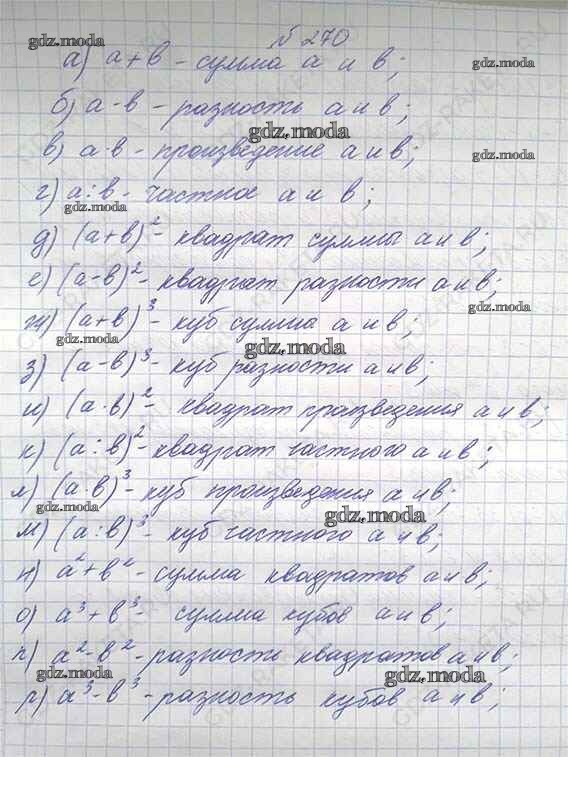 № 270
а) а + в - сумма а и в;
б) а - в - разность а и в;
в) а · в - произведение а и в;
г) а : в - частное а и в;
д) (а + в)² - квадрат суммы а и в;
е) (а - в)² - квадрат разности а и в;
ж) (а + в)³ - куб сумма а и в;
з) (а - в)³ - куб разности а и в;
и) (а · в)² - квадрат произведения а и в;
к) (а : в)² - квадрат частного а и в;
л) (а · в)³ - куб произведения а и в;
м) (а : в)³ - куб частного а и в;
н) а² + в² - сумма квадратов а и в;
о) а³ + в³ - сумма кубов а и в;
п) а² - в² - разность квадратов а и в;
р) а³ - в³ - разность кубов а и в;
gdz.moda
gdz.moda
gdz.moda
gdz.moda
gdz.moda
gdz.moda
gdz.moda
gdz.moda
gdz.moda
gdz.moda
gdz.moda
gdz.moda
gdz.moda